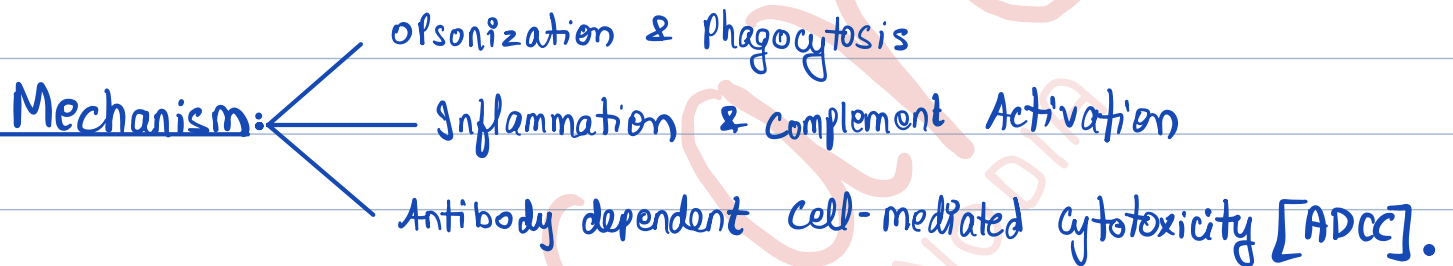 Opsonization & Phagocytosis
Mechanism:
Inflammation & Complement Activation
Antibody dependent Cell-mediated cytotoxicity [ADCC].